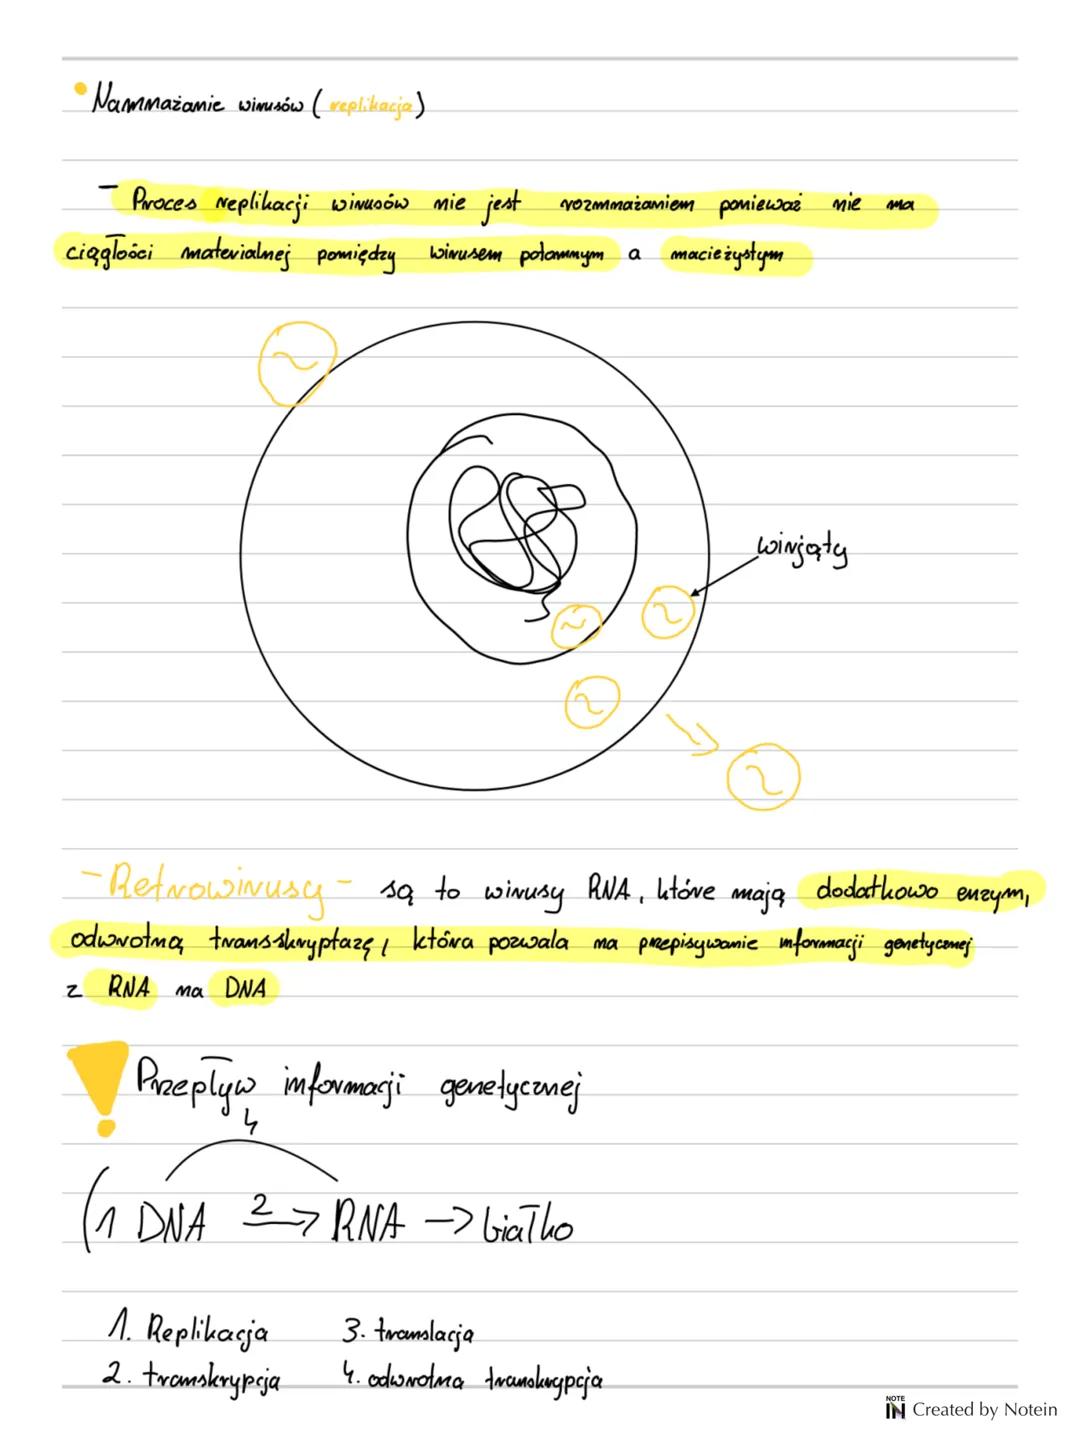 • Namnażanie wirusów (replikacja)
- Proces replikacji wirusów nie jest rozmnażaniem ponieważ nie ma
ciągłości materialnej pomiędzy wirusem potomnym a macieżystym
wirjąty
- Retrowirusy - są to wirusy RNA, które mają dodatkowo enzym,
odwrotną transskryptazę, która pozwala na przepisywanie informacji genetycznej
z RNA na DNA
! Przepływ informacji genetycznej
4
(1 DNA 2→ RNA → białko
1. Replikacja 3. translacja
2. transkrypcja 4. odwrotna transkrypcja
NOTE IN Created by Notein